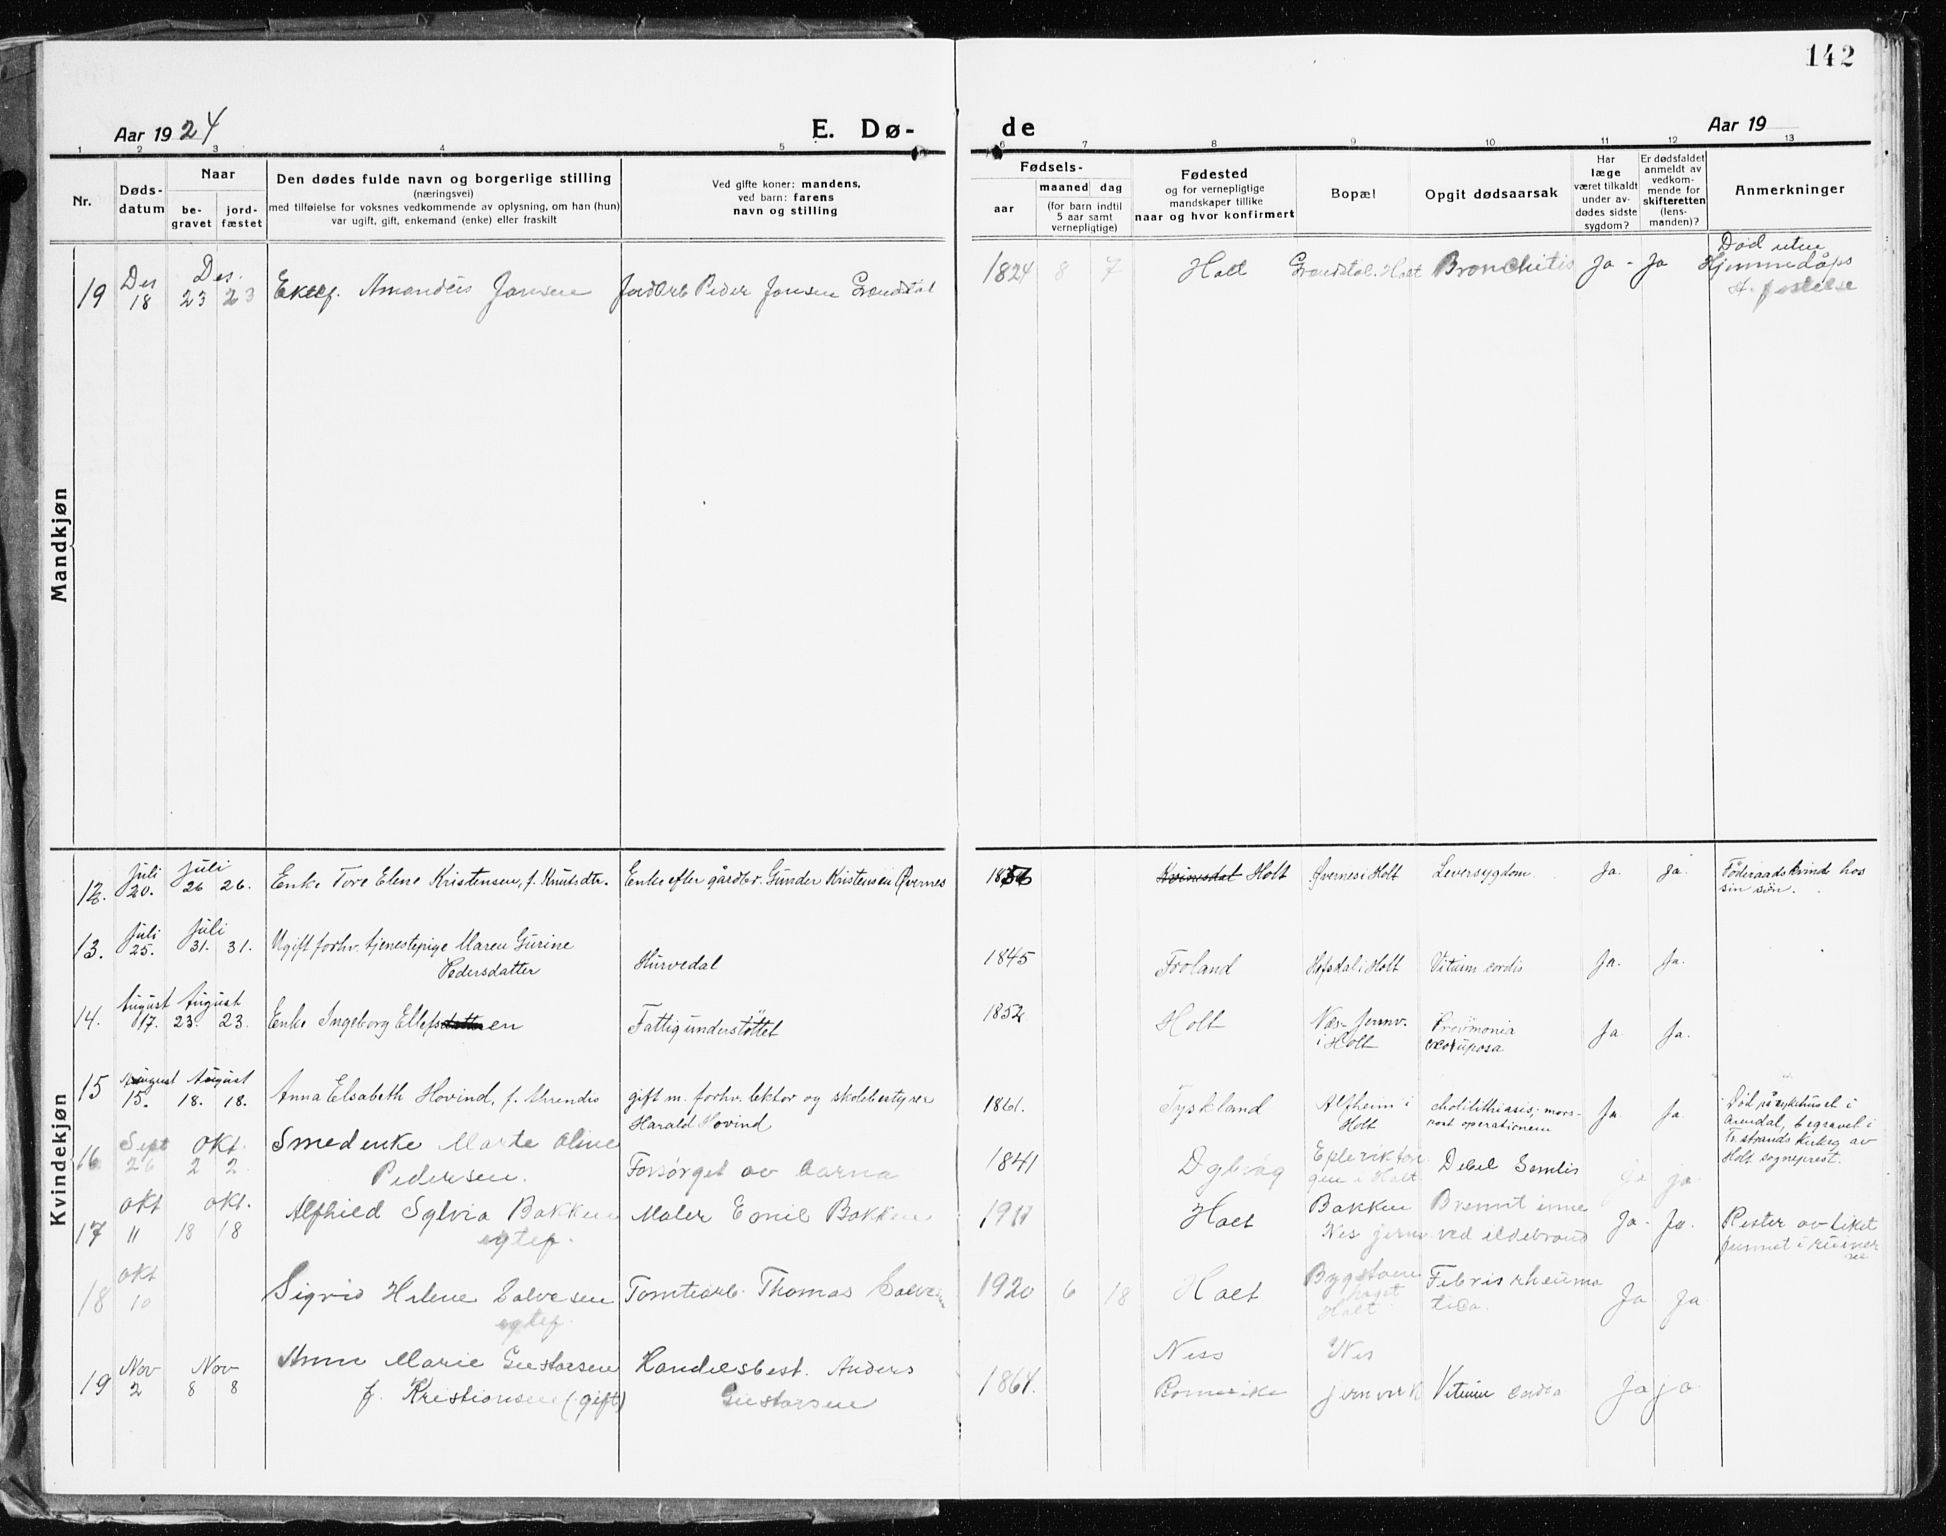 142
Aar 1924
E. Dø-
de
Aar 19
1 2 3 4 5 6 7 8 9 10 11 12 13
Nr.
Døds-
datum
Naar
be-
gravet
jord-
fæstet
Den dødes fulde navn og borgerlige stilling
(næringsvei)
med tilføielse for voksnes vedkommende av oplysning, om han (hun)
var ugift, gift, enkemand (enke) eller fraskilt
Ved gifte koner: mandens,
ved barn: farens
navn og stilling
Fødsels-
aar
maaned dag
(for barn indtil
5 aar samt
vernepligtige)
Fødested
og for vernepligtige
mandskaper tillike
naar og hvor konfirmert
Bopæl
Opgit dødsaarsak
Har
læge
været tilkaldt
under av-
dødes sidste
sygdom?
Er dødsfaldet
anmeldt av
vedkom-
mende for
skifteretten
(lens-
manden)?
Anmerkninger
Mandkjøn
19 Des 18 Des. 23 23 Amandus Jansen Peder Jansen 1824 8 7 Holt Holt Bronchitis Ja - Ja
Død uten
Hjemmedåps
Kvindekjøn
12. Juli 20. Juli 26 26. Enke Tore Elene Kristensen, f. Knutsdtr. Enke efter gårdbr. Gunder Kristensen Øvernes Kvinesdal Holt Øvernes i Holt Leversygdom Ja. Ja.
Føderaadskvinde hos
sin søn.
13. Juli 25. Juli 31. 31. Ugift forhv. tjenestepige Maren Gurine
Pedersdatter
Hurvedal 1845 Froland Hofsdal i Holt Vitium cordis Ja. Ja.
14. August 17. August 23. 23. Enke Ingeborg Ellefsen Fattigunderstøttet 1852 Holt Næs Jernv.
i Holt
Prevmonia
crouposa
Ja Ja.
15 August 15. August 18. 18. Anna Elsabeth Hovind, f. Ahrends gift m. forhv. lektor og skolebestyrer
Harald Hovind
1861. Tyskland Alfheim i
Holt
cholilithiasis; mors
post operationem
Ja. Ja.
Død på sykehuset i
Arendal, begravet i
Tvestrands kirkeg av
Holt sogneprest.
16 Sept 26 Okt. 2 2. Smedenke Marte Oline
Pedersen.
Forsørget av barna 1841 Dybvåg i Holt Debil Senilis ja ja.
17 Okt 11 Okt. 18 18 Alfhild Sylvia Bakken
egtef.
Maler Emil Bakken 1911 Holt Bakken
Nes jern
Brennt inne
ved ildebrand
Ja. Ja.
Rester av liket
funnet i ruiner
18 Okt 10 Sigrid Helene Salvesen
egtef.
Tomtearb. Thomas Salvesen 1920 6 18 Holt
Holt
Febris rheuma
tica.
Ja Ja.
19 Nov 2 Nov 8 8 Anne Marie Gustavsen
f. Kristiansen (gift)
Handelsbest. Anders
Gustavsen
1864. Ness
Romerike
Nes
jernverk
Vitium Cordis Ja ja.